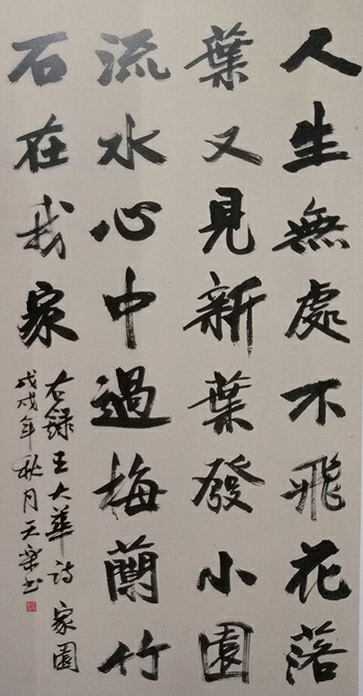 人生無處不飛花落
葉又見新葉發小園
流水心中過梅蘭竹
石在我家
右録王大華詩家園
戊戌年秋月天樂书